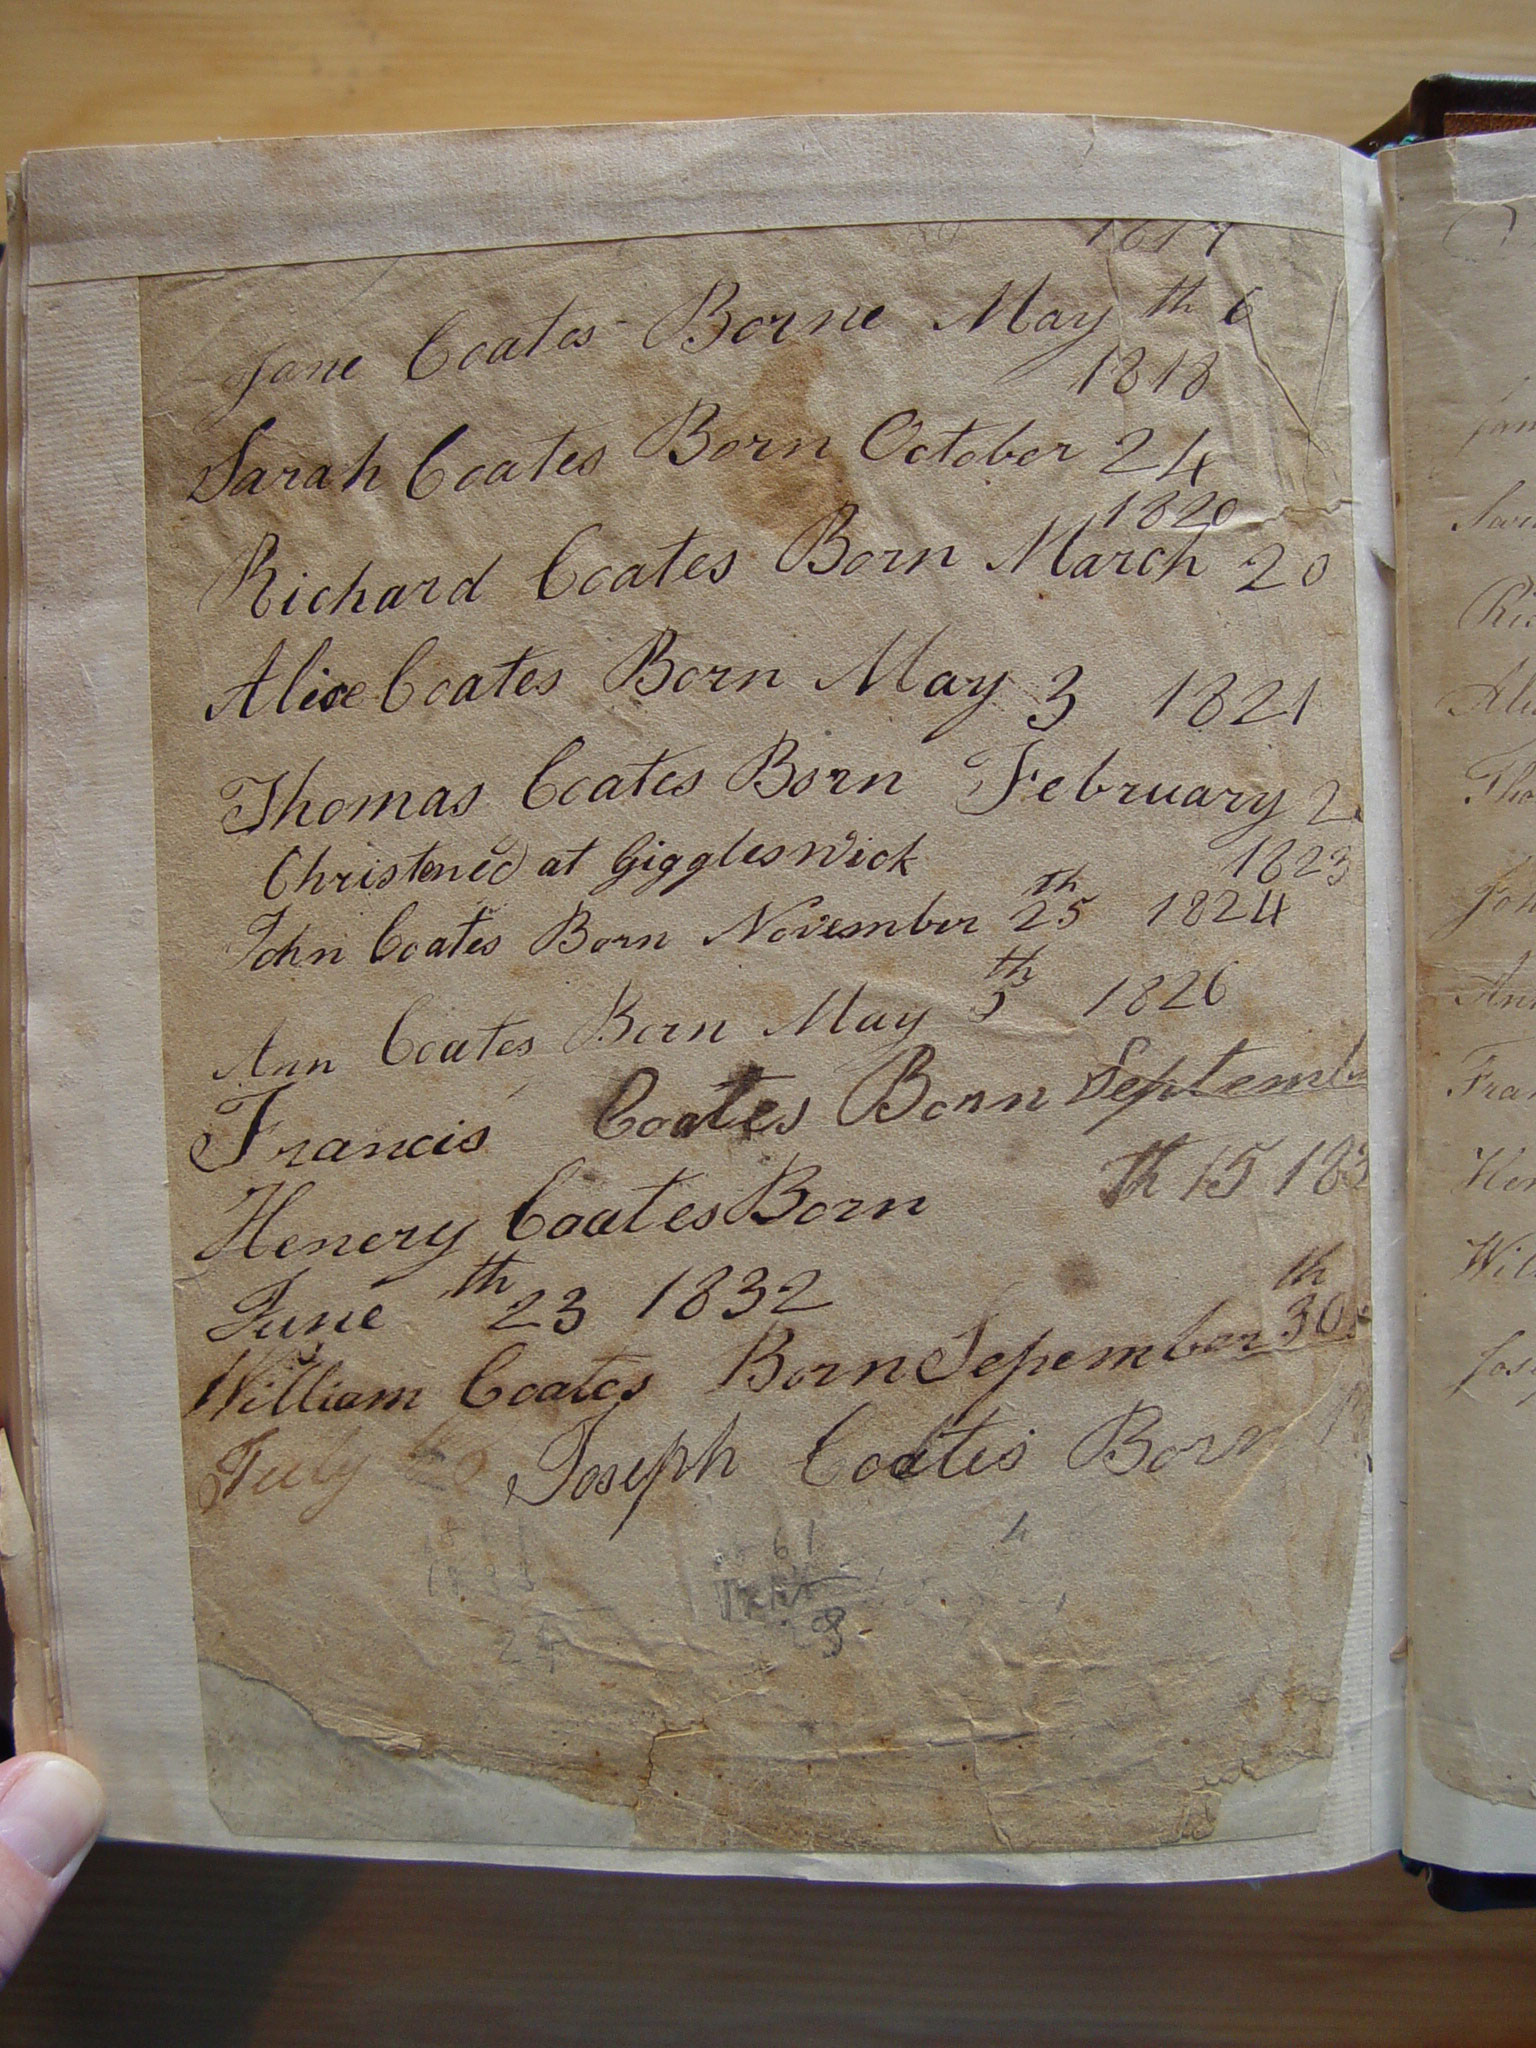 1817
Jane Coates Borne May th 6
1818
Sarah Coates Born October 24
1820
Richard Coates Born March 20
Alice Coates Born May 3 1821
Thomas Coates Born February 2
Christened at Giggleswick 1823
John Coates Born November 25th 1824
Ann Coates Born May th 1826
Francis Coates Born Septemb
th 15 183
Henery Coates Born
June th 23 1832
William Coates Born Sepember 30th
July Joseph Coates Born
61
4
24
Jan
Sar
Ric
Ali
Tho
Joh
Ann
Fran
Hen
Wil
Jos